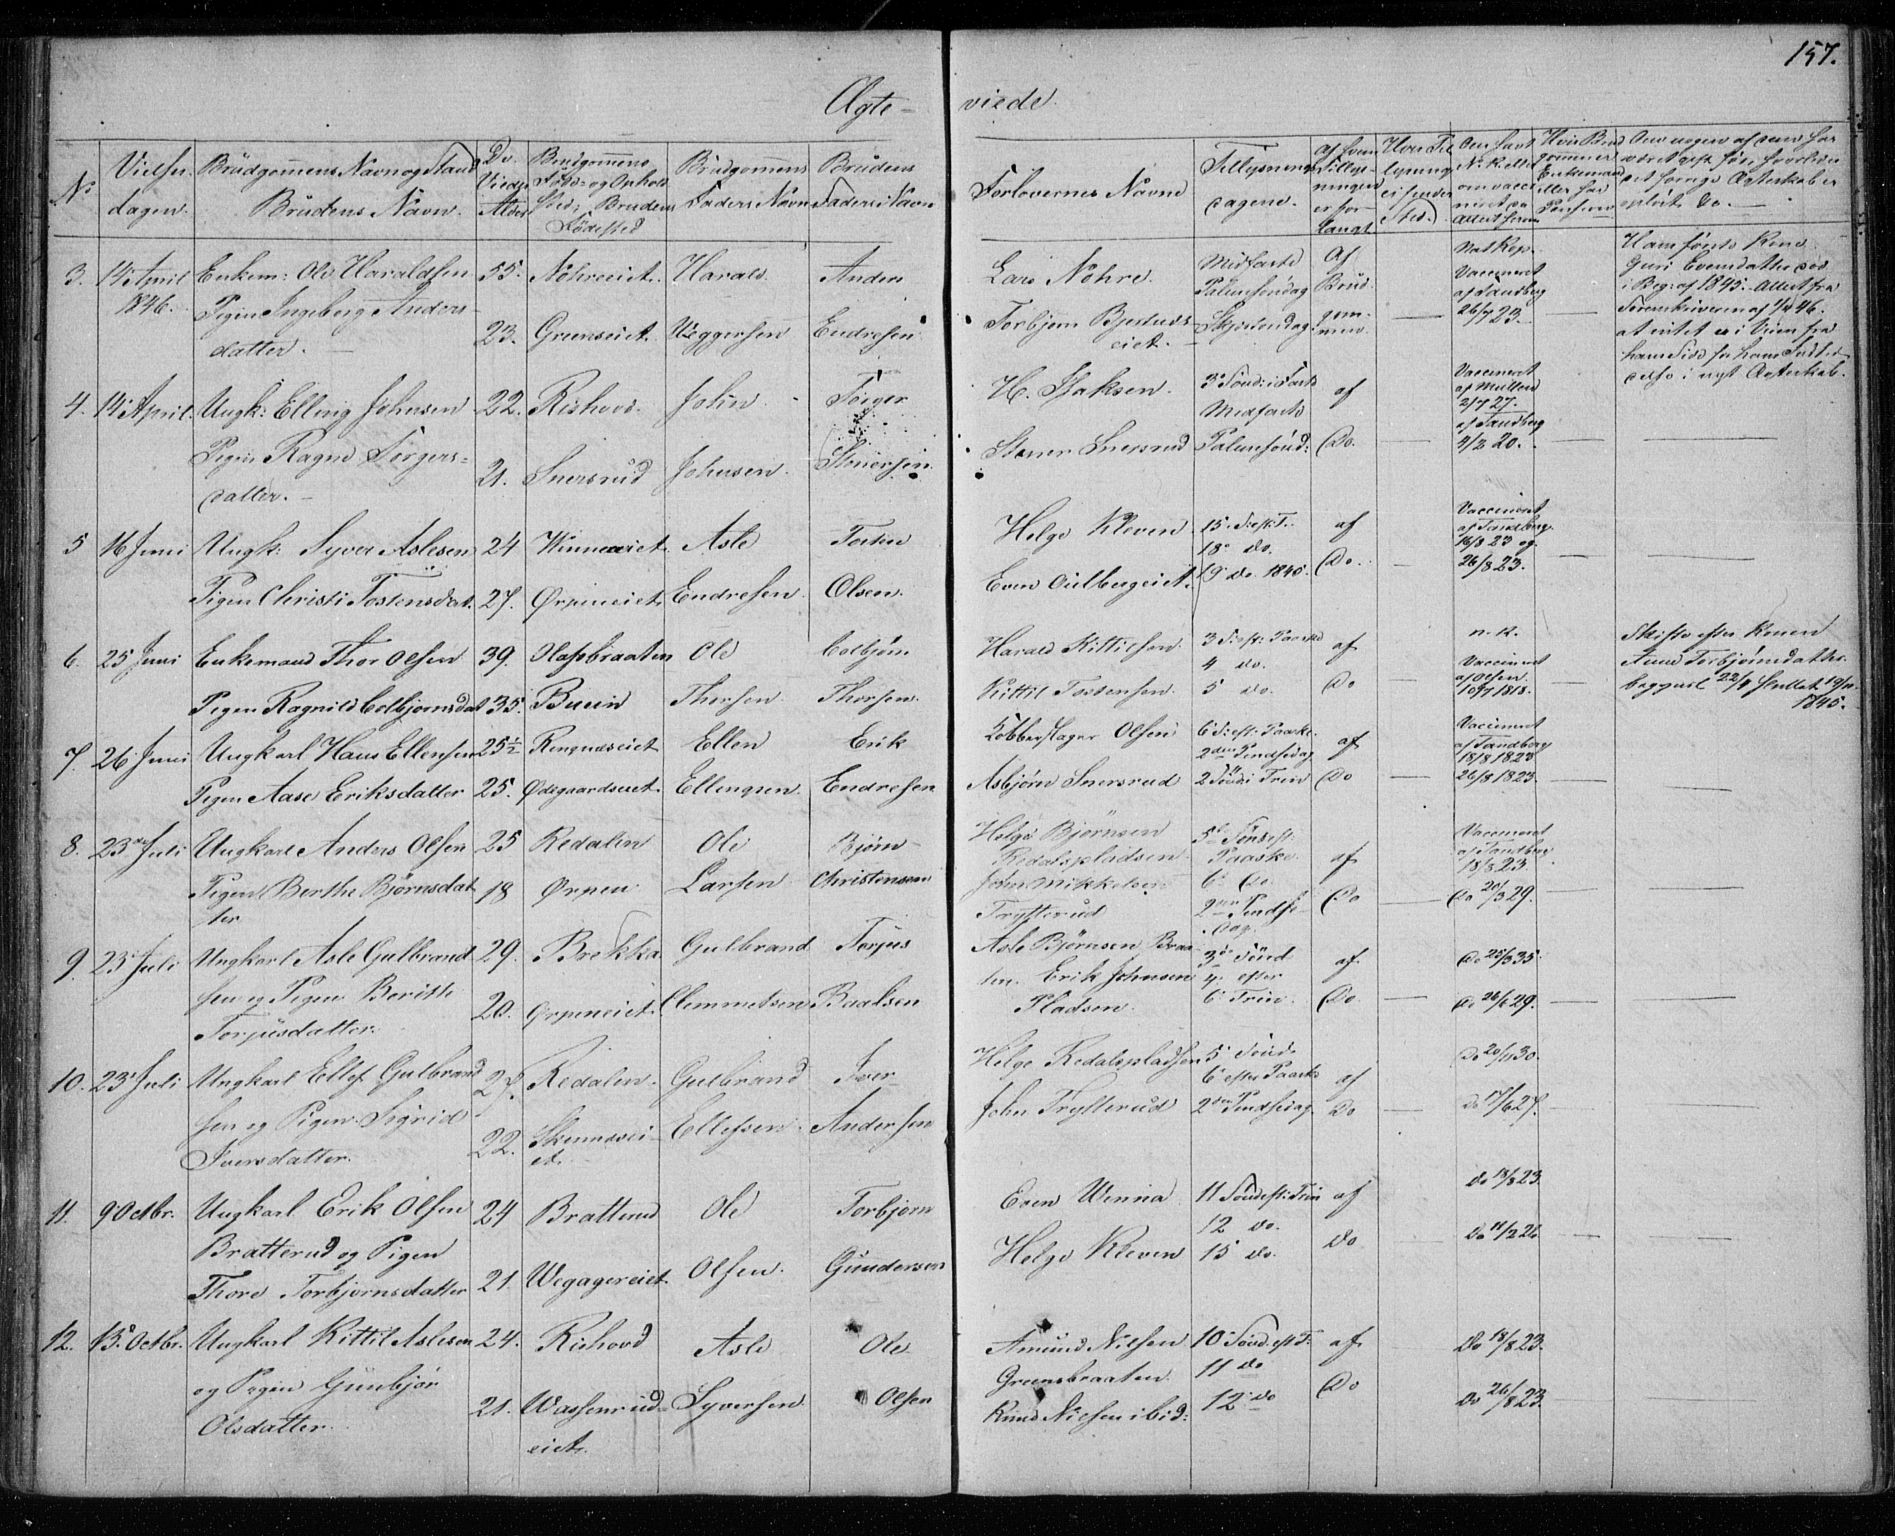 157.
Ægte-
viede.
No
Vielses
dagen.
Brüdgommens Navn og Stand
Brudens Navn.
De
Viedes
Alder
Brudgommens
Føde- og Opholds
Sted; Brudens
Fødested
Brüdgommens
Faders Navn
Brudens
Faders Navn
Forlovernes Navne
Tillysnings
dagene.
Af hvem
Tillys-
ningen
er for-
langt
Hvor Til
lysning
ei skeder
Sted.
3. 14 April
1846.
Enkem: Ole Haraldsen
Pigen Ingeborg Anders-
datter.
55.
23.
Nohreeiet.
Grunseiet.
Harald
Veggersen
Anders
Endresen
Lars Nohre.
Torbjørn
eiet.
Midfaste
Palmesøndag
Af
Brud
gom-
men.
Vaccineret
af Sandberg
26/7 23.
Hans første Kone
Guri Evensdatter død
i Beg: af 1845. Attest fra
4. 14 April.
Ungk: Elling Johnsen
Pigen Ragne Torgers-
datter.
22.
21.
Rishovd.
Snersrud
John
Johnsen.
Torger
H. Isaksen.
Stener Snersrud
Midfaste
Palmesønd:
af
Do.
Vaccineret
af Møller
2/7 27.
af Sandberg
4/3 20.
5 16 Juni
Ungk: Syver Aslesen
Pigen Christi Tostensdat.
24
27.
Winneseiet
Ørpeneiet
Asle
Endresen.
Tosten
Olsen.
Helge Kleven
Even Gulbergeiet.
15. S. eft. T.
18 do.
19 do 1845.
af
Do.
Vaccineret
af Sandberg
16/8 23 og
26/8 23.
6. 25 Juni
Enkemand Thor Olsen
Pigen Ragnild Colbjørnsdat
39.
35.
Olasbraaten
Buin
Ole
Thorsen.
Colbjørn
Thorsen.
Harald Kittilsen.
Kittil Tostensen.
3 S: eft: Paaske
4 do.
5 do.
af
Do
n. K.
Vaccineret
af Olsen
10/7 1818.
Skifte efter Konen
Anne Torbjørnsdatter
begyndt 22/8 sluttet 19/12
1845.
7. 26 Juni
Ungkarl Hans Ellensen
Pigen Aase Eriksdatter
25½
25.
Ringnæseiet
Ødegaardseiet
Ellen
Ellingsen.
Erik
Endresen
Kobberslager Olsen
Asbjørn Snersrud
6 S: eft: Paaske.
2den Pindsedag
2 Sønd i Trin
af
Do
Vaccineret
af Sandberg
18/8 1823
26/8 1823.
8. 23de Juli
Ungkarl Anders Olsen
Pigen Berthe Bjørnsdat
ter
25
18
Redalen
Ørpen
Ole
Larsen
Bjørn
Christensen
Helge Bjørnsen
Redalspladsen
John Mikkelsen
Trytterud
5te Sønd eft
Paaske.
6. do
2den Pindse-
dag.
af
Do
Vaccineret
af Sandberg
18/8 23.
Do 20/3 29.
9 23 Juli
Ungkarl Asle Gulbrand
sen og Pigen Berithe
Torjusdatter.
29.
20.
Brekka
Ørpeneiet.
Gulbrand
Clemmetsen
Torjus
Baalsen
Asle Bjørnsen Braa-
ten. Erik Johnsen
Pladsen.
3d Sønd
4. efter
6 Trin.
af
Do.
Do 25/3 35.
Do 26/6 29.
10. 23 Juli
Ungkarl Ellef Gulbrand
sen og Pigen Sigrid
Iversdatter.
27.
22.
Redalen.
Gulbrand
Ellefsen.
Iver
Andersen
Helge Redalspladsen
John Trytterud
5 Sønd
6 efter Paaske
2den Pindsedag
af
Do
Do 20/11 30.
Do 17/6 27.
11. 9 Octbr.
Ungkarl Erik Olsen
Bratterud og Pigen
Thore Torbjørnsdatter
24
21.
Bratterud
Wegagereiet
Ole
Olsen.
Torbjørn
Gundersen
Even Winna
Helge Kleven
11 Sønd eft: Trin
12 do.
15 do.
af
Do
do 18/8 23.
Do 11/2 26
12. 15 Octbr.
Ungkarl Kittil Aslesen
og Pigen Gunbjør
Olsdatter.
24.
21.
Rishovd
Wassenrud-
eiet.
Asle
Syversen
Ole
Olsen
Amund Nilsen
Grunsbraaten.
Knud Nilsen ibid:
10 Sønd. eft T.
11 do
12 do
af
Do
Do 18/8 23.
Do 26/8 23.